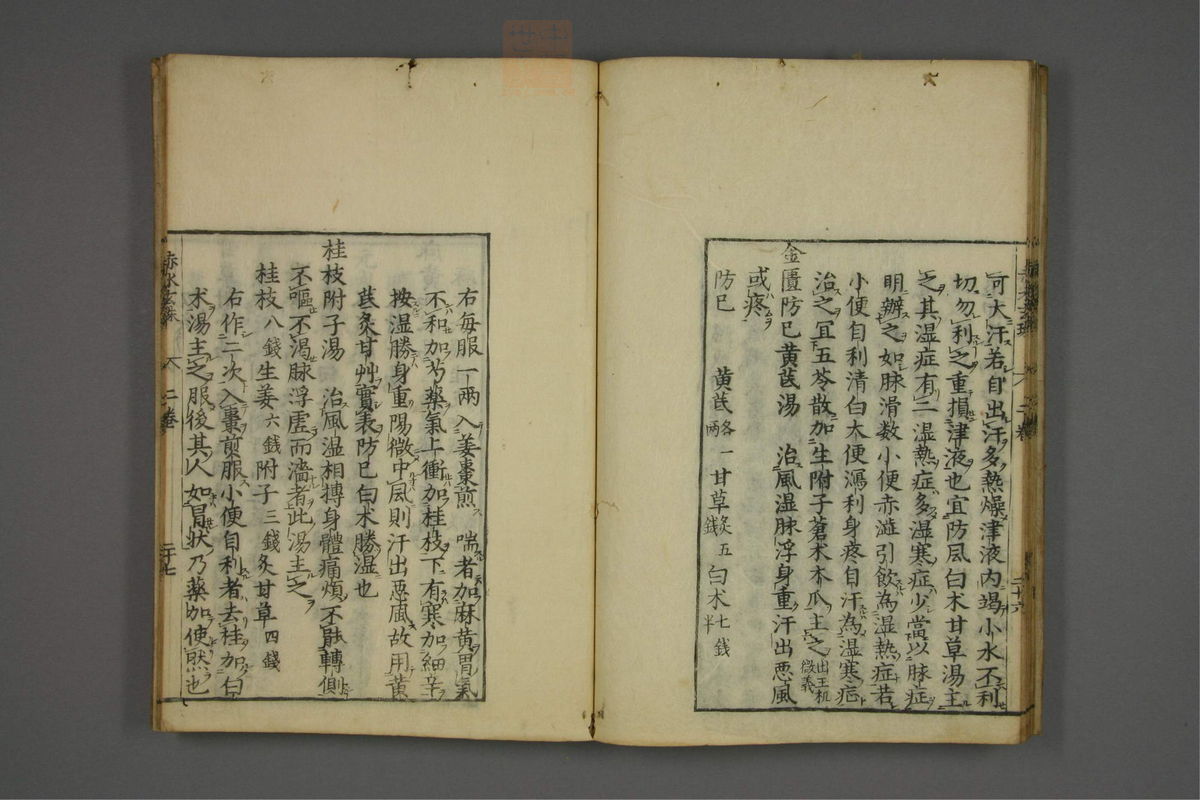 可大汗若自出汗多熱燥津液内竭小水不利
切勿利之重損津液也宜防風白术甘草湯主
之其湿症有二湿熱症多湿寒症少當以脉症
明辨之如脉滑数小便赤澁引飲為湿熱症若
小便自利清白大便瀉利身疼自汗為湿寒症
治之宜五苓散加生附子蒼术木瓜主之出王机微義
金匱防已黄芪湯 治風湿脉浮身重汗出悪風
或疼
防已 黄芪各一兩 甘草炙五錢 白术七錢半
二十六
赤水玄珠 二卷 二十七
右每服一兩入姜棗煎 喘者加麻黄胃氣
不和加芍藥氣上衝加桂枝下有寒加細辛
按湿勝身重陽微中風則汗出悪風故用黄
芪炙甘艸實表防已白术勝湿也
桂枝附子湯 治風湿相搏身體痛煩不能轉側
不嘔不渴脉浮虚而濇者此湯主之
桂枝八錢生姜六錢附子三錢炙甘草四錢
右作二次入棗煎服小便自利者去桂加白
术湯主之服後其人如冒狀乃藥加使然也